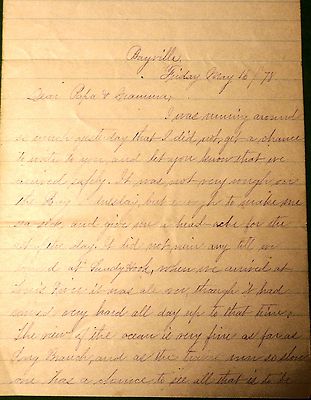 Bayville,
Friday May 16/78
Dear Papa & Mamma,
I was running around
so much yesterday that I did not get a chance
to write to you and let you know that we
arrived safely. It was not very rough on
the Bay Tuesday, but enough to make me
sea sick, and give me a head-ache for the
day. It did not rain any till we
at Sandy Hook, when we arrived at
Toms River it was all over, though it had
rained very hard all day up to that time.
The view of the ocean is very fine as far as
Long Branch, and as the trains run so slow
one has a chance to see all that is to be